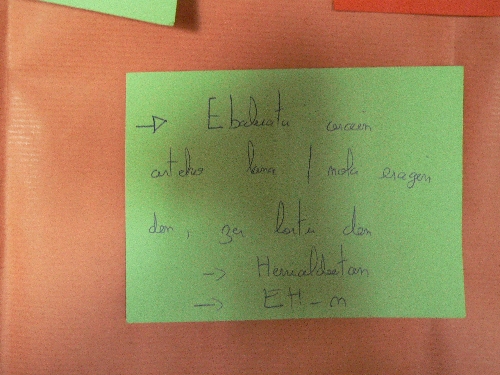 → Ebaluatu orain
arteko lana / nola eragin
den, zer lortu den
→ Herrialdeetan
→ EH-n